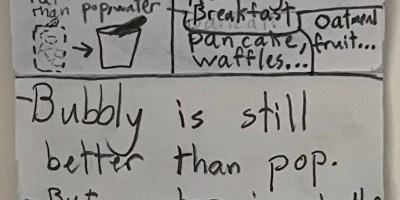 than pop water
Breakfast
pancake,
waffles...
Oatmeal
fruit...
-Bubbly is still
better than pop.
But